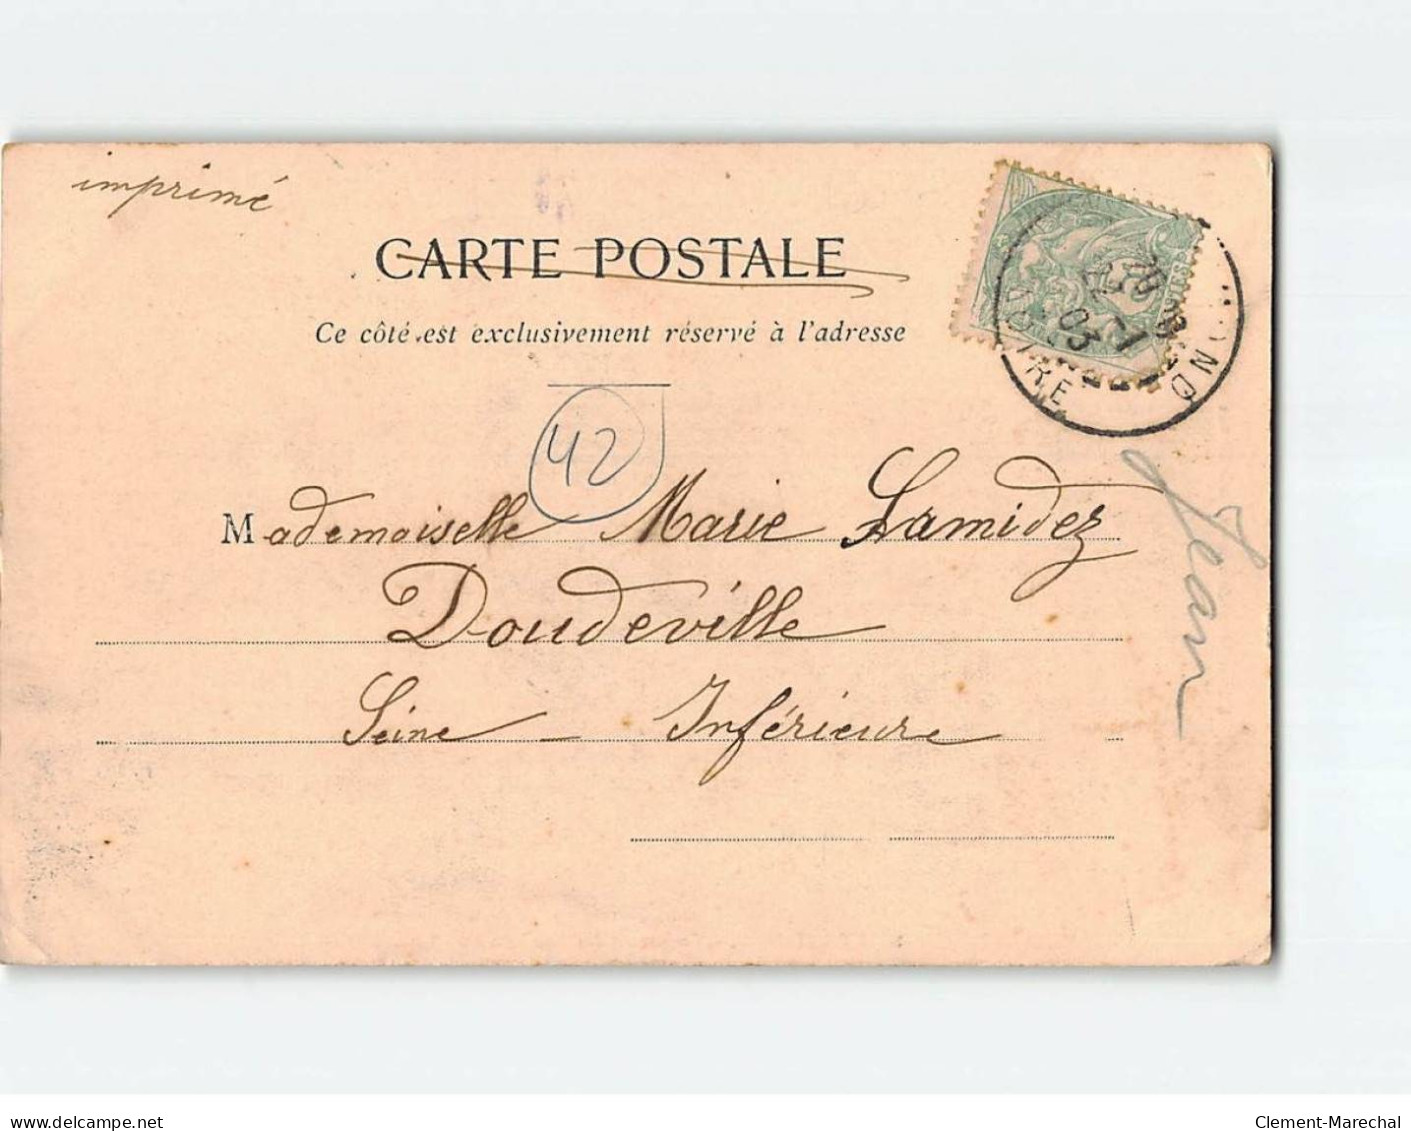 imprimé
CARTE POSTALE
Ce côté est exclusivement réservé à l'adresse
42
Mademoiselle Marie Lamidez
Doudeville
Seine - Inférieure
Jean
03
LOIRE
delcampe.net
Clement-Marechal